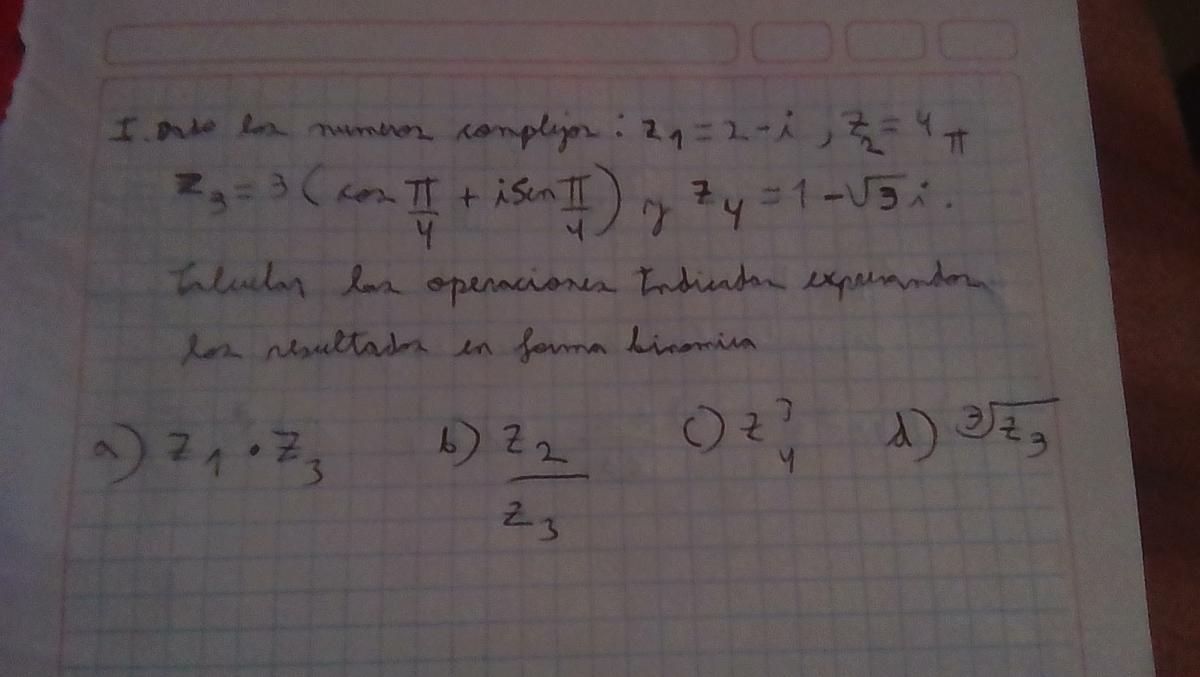 I. Dado los numeros complejos: z₁ = 2 - i, z₂ = 4_π
z₃ = 3 ( cos π/4 + i sen π/4 ) y z₄ = 1 - √3 i.
Calcular las operaciones Indicadas expresandos
los resultados en forma binomica
a) z₁ · z₃ b) z₂/z₃ c) z₄³ d) ³√z₃